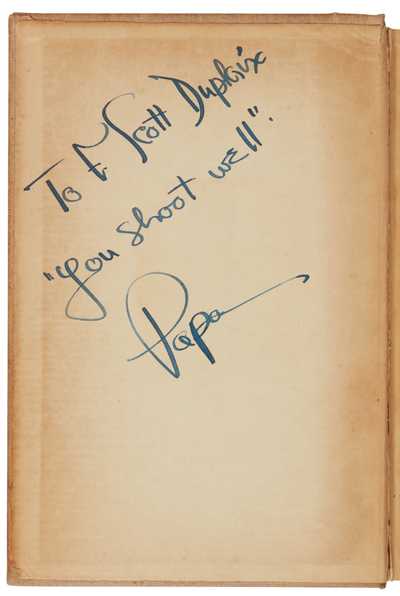 To F. Scott Duplaix
"you shoot well".
Papa